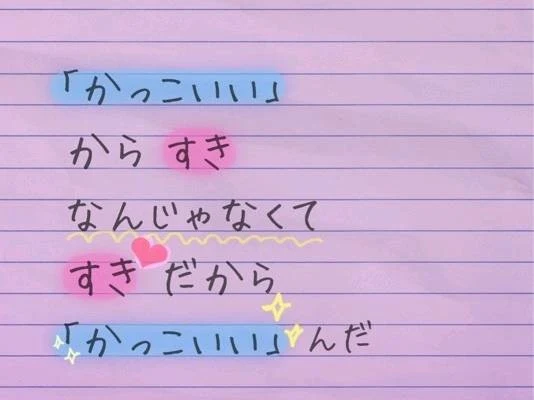 「かっこいい」
から すき
なんじゃなくて
すき だから
「かっこいい」んだ